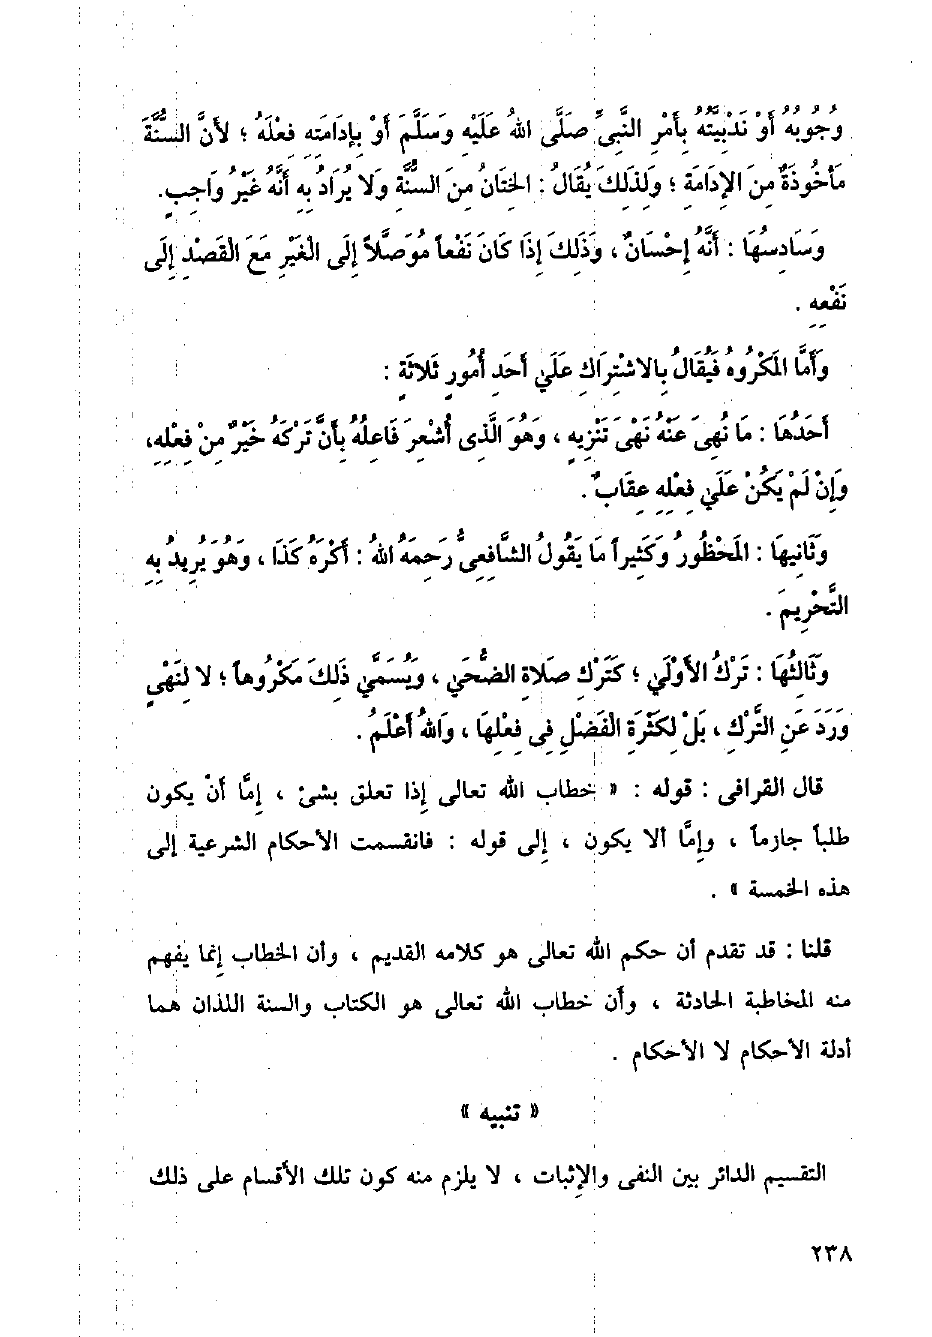 وُجُوبُهُ أَوْ نَدْبِيَّتُهُ بِأَمْرِ النَّبِيِّ صَلَّى اللهُ عَلَيْهِ وَسَلَّمَ أَوْ بِإِدَامَتِهِ فِعْلَهُ ؛ لأَنَّ السُّنَّةَ
مَأْخُوذَةٌ مِنَ الإِدَامَةِ ؛ وَلِذَلِكَ يُقَالُ : الخِتَانُ مِنَ السُّنَّةِ وَلا يُرَادُ بِهِ أَنَّهُ غَيْرُ وَاجِبٍ.
وَسَادِسُهَا : أَنَّهُ إِحْسَانٌ ، وَذَلِكَ إِذَا كَانَ نَفْعاً مُوَصَّلاً إِلَى الْغَيْرِ مَعَ الْقَصْدِ إِلَى
نَفْعِهِ .
وَأَمَّا المَكْرُوهُ فَيُقَالُ بِالاشْتِرَاكِ عَلَى أَحَدِ أُمُورٍ ثَلاثَةٍ :
أَحَدُهَا : مَا نُهِيَ عَنْهُ نَهْيَ تَنْزِيهٍ ، وَهُوَ الَّذِي أُشْعِرَ فَاعِلُهُ بِأَنَّ تَرْكَهُ خَيْرٌ مِنْ فِعْلِهِ،
وَإِنْ لَمْ يَكُنْ عَلَى فِعْلِهِ عِقَابٌ .
وَثَانِيهَا : المَحْظُورُ وَكَثِيراً مَا يَقُولُ الشَّافِعِيُّ رَحِمَهُ اللهُ : أَكْرَهُ كَذَا ، وَهُوَ يُرِيدُ بِهِ
التَّحْرِيمَ .
وَثَالِثُهَا : تَرْكُ الأَوْلَى ؛ كَتَرْكِ صَلاةِ الضُّحَى ، وَيُسَمَّى ذَلِكَ مَكْرُوهاً ؛ لا لِنَهْيٍ
وَرَدَ عَنِ التَّرْكِ ، بَلْ لِكَثْرَةِ الْفَضْلِ فِى فِعْلِهَا ، وَاللهُ أَعْلَمُ .
قال القرافى : قوله : « خطاب الله تعالى إذا تعلق بشئ ، إمَّا أنْ يكون
طلباً جازماً ، وإمَّا ألا يكون ، إلى قوله : فانقسمت الأحكام الشرعية إلى
هذه الخمسة » .
قلنا : قد تقدم أن حكم الله تعالى هو كلامه القديم ، وأن الخطاب إنما يفهم
منه المخاطبة الحادثة ، وأن خطاب الله تعالى هو الكتاب والسنة اللذان هما
أدلة الأحكام لا الأحكام .
« تنبيه »
التقسيم الدائر بين النفى والإثبات ، لا يلزم منه كون تلك الأقسام على ذلك
٢٣٨